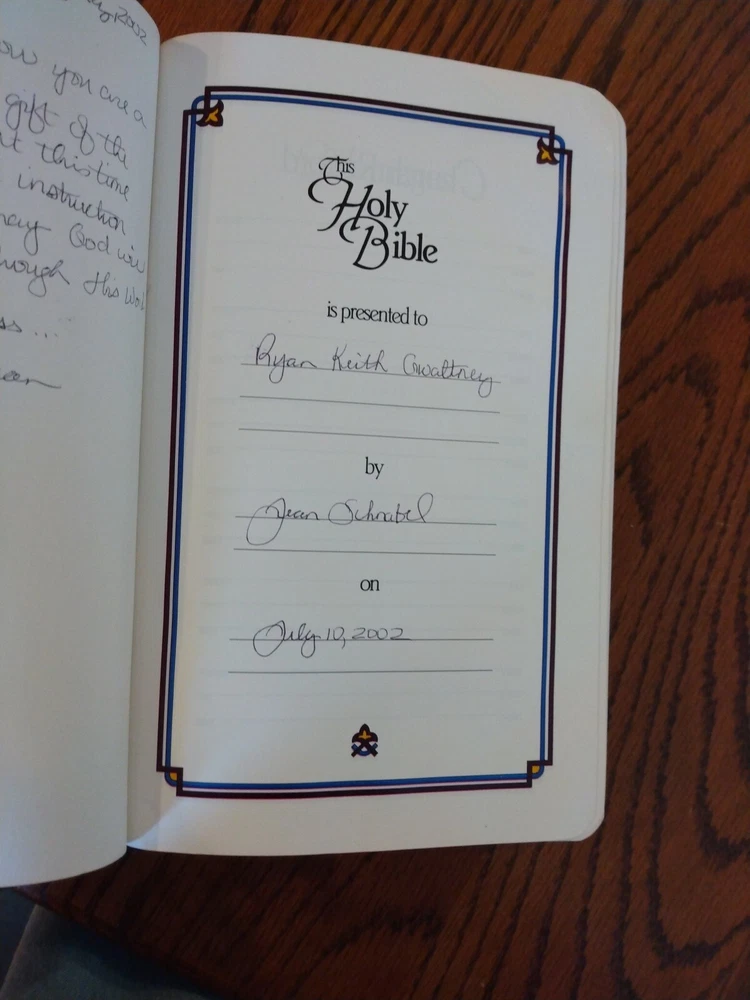 July 2002
you are a
gift of the
this time
instruction
God
through His
ss...
This
Holy
Bible
is presented to
Ryan Keith Gwaltney
by
Jean Schnabel
on
July 10, 2002